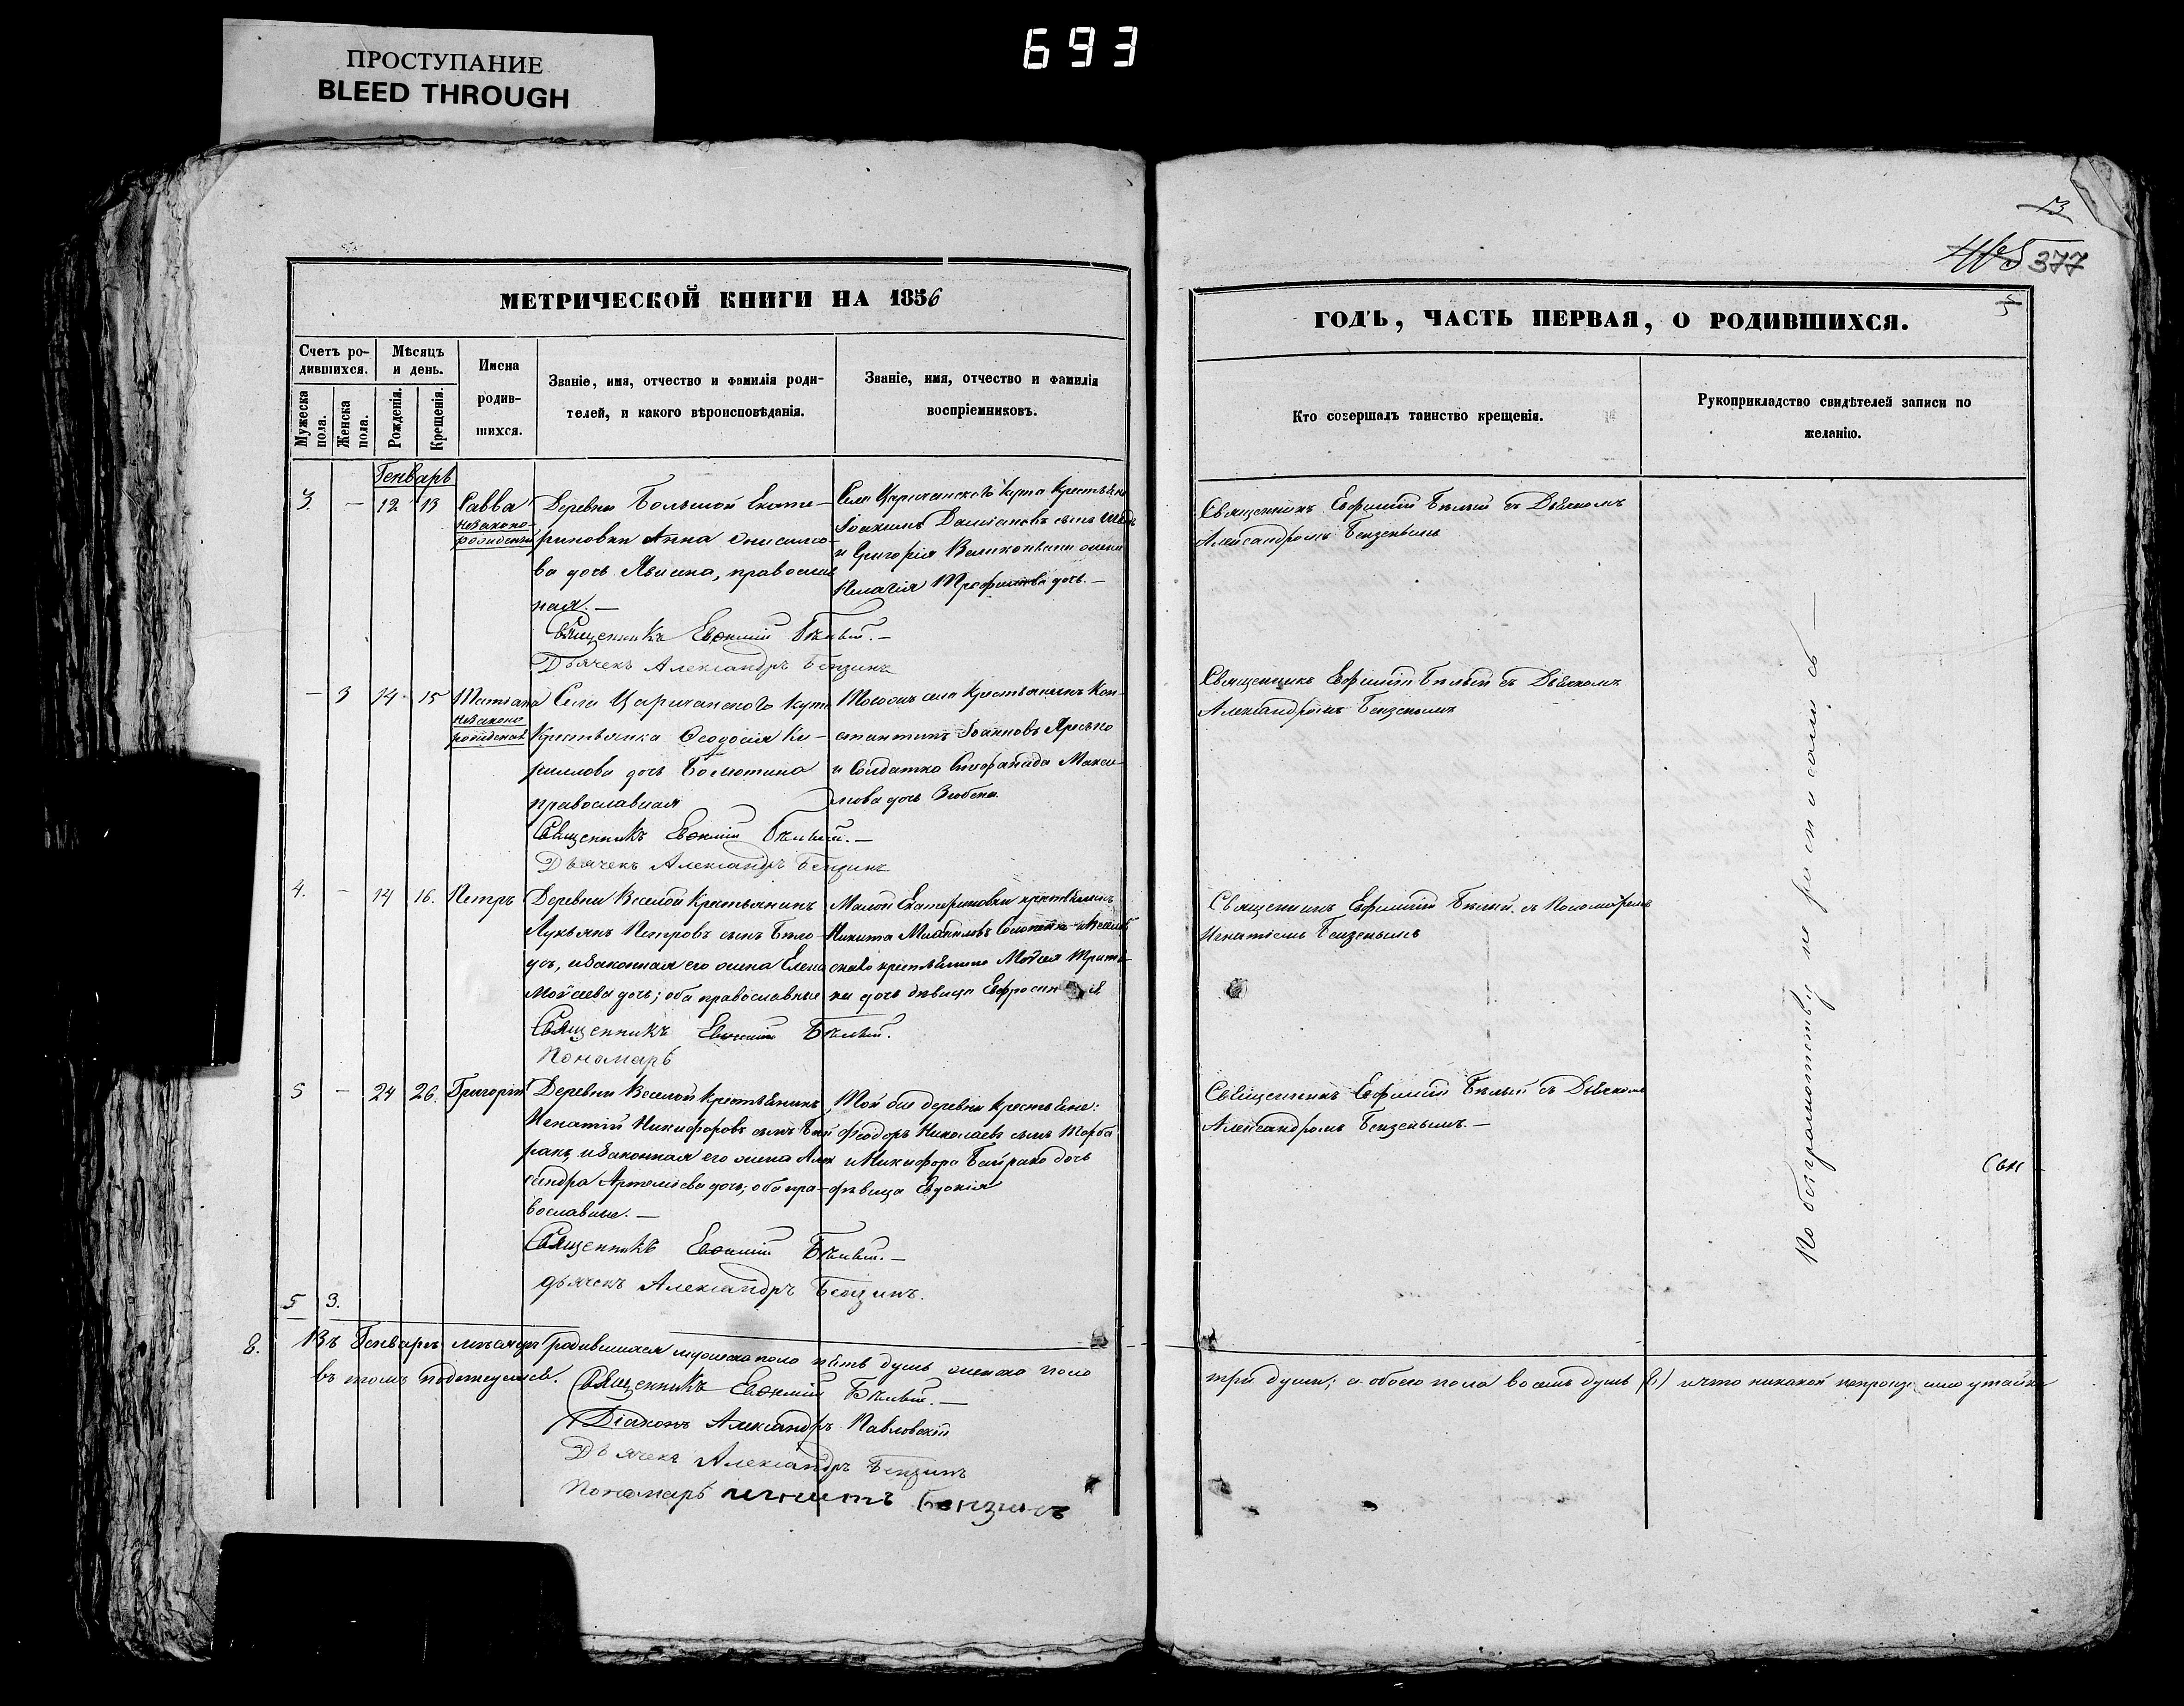 ПРОСТУПАНИЕ
BLEED THROUGH
693
13
377
5
МЕТРИЧЕСКОЙ КНИГИ НА 1856
Счетъ ро-
дившихся.
Мужеска
пола.
Женска
пола.
Мѣсяцъ
и день.
Рожденія.
Крещенія.
Имена
родив-
шихся.
Званіе, имя, отчество и фамилія роди-
телей, и какого вѣроисповѣданія.
Званіе, имя, отчество и фамилія
воспріемниковъ.
Генварь
3. — 12 13 Савва
незаконо-
рожденный
Деревни Большой Екате-
риновки Анна Онисимо-
ва дочь, православ
ная. —
Священникъ Евѳимій Бѣлый. —
Дьячекъ Александръ Бензинъ
Села Царичанскаго Кута Крестьяне
Іоакимъ Даміановъ сынъ
и Григорія жена
Пелагія Трофимова дочь. —
— 3 14 15 Татіана
незаконо
рожденная
Села Царичанского Кута
Крестьянка Ѳеодосія Ки-
рилова дочь Болютина
православная
Священникъ Евѳимій Бѣлый. —
Дьячекъ Александръ Бензинъ
Того жъ села Крестьянинъ Кон-
стантинъ Іоанновъ Яресько
и Солдатка Стефанида Макси-
мова дочь
4. — 14 16. Петръ
Деревни Веселой Крестьянинъ
Лукьянъ Петровъ сынъ Бѣло-
усъ, и законная его жена Елена
Мойсеева дочь; оба православные
Священникъ Евѳимій Бѣлый.
Пономарь
Малой Екатериновки крестьянинъ
Никита Михайловъ
крестьянина Мойсея
ки дочь дѣвица Ефросинія
5 — 24 26. Григорій
Деревни Веселой Крестьянинъ
Игнатій Никифоровъ сынъ Бай
ракъ, и законная его жена Алек
сандра Артеміева дочь; оба пра-
вославные. —
Священникъ Евѳимій Бѣлый. —
дьячекъ Александръ Бензинъ.
Той же деревни Крестьяне:
Ѳеодоръ Николаевъ сынъ Торба
и Никифора Байрака дочь
дѣвица Евдокія
5 3.
8. Въ Генварѣ мѣсяцѣ родившихся мужеска пола пять душъ женска пола
въ томъ подписуемся. Священникъ Евѳимій Бѣлый. —
Діаконъ Александръ Павловскій
Дьячекъ Александръ Бензинъ
Пономарь Игнатъ Бензинъ
ГОДЪ, ЧАСТЬ ПЕРВАЯ, О РОДИВШИХСЯ.
Кто совершалъ таинство крещенія.
Рукоприкладство свидѣтелей записи по
желанію.
Священникъ Ефимій Бѣлый съ Дьячкомъ
Александромъ Бензенымъ
Священникъ Ефимій Бѣлый съ Дьячкомъ
Александромъ Бензенымъ
Священникъ Ефимій Бѣлый съ Пономаремъ
Игнатіемъ Бензенымъ
Священникъ Ефимій Бѣлый съ Дьячкомъ
Александромъ Бензенымъ. —
По безграмотству не росписались —
три души; а обоего пола восемь душъ (8) и что никакой утайки